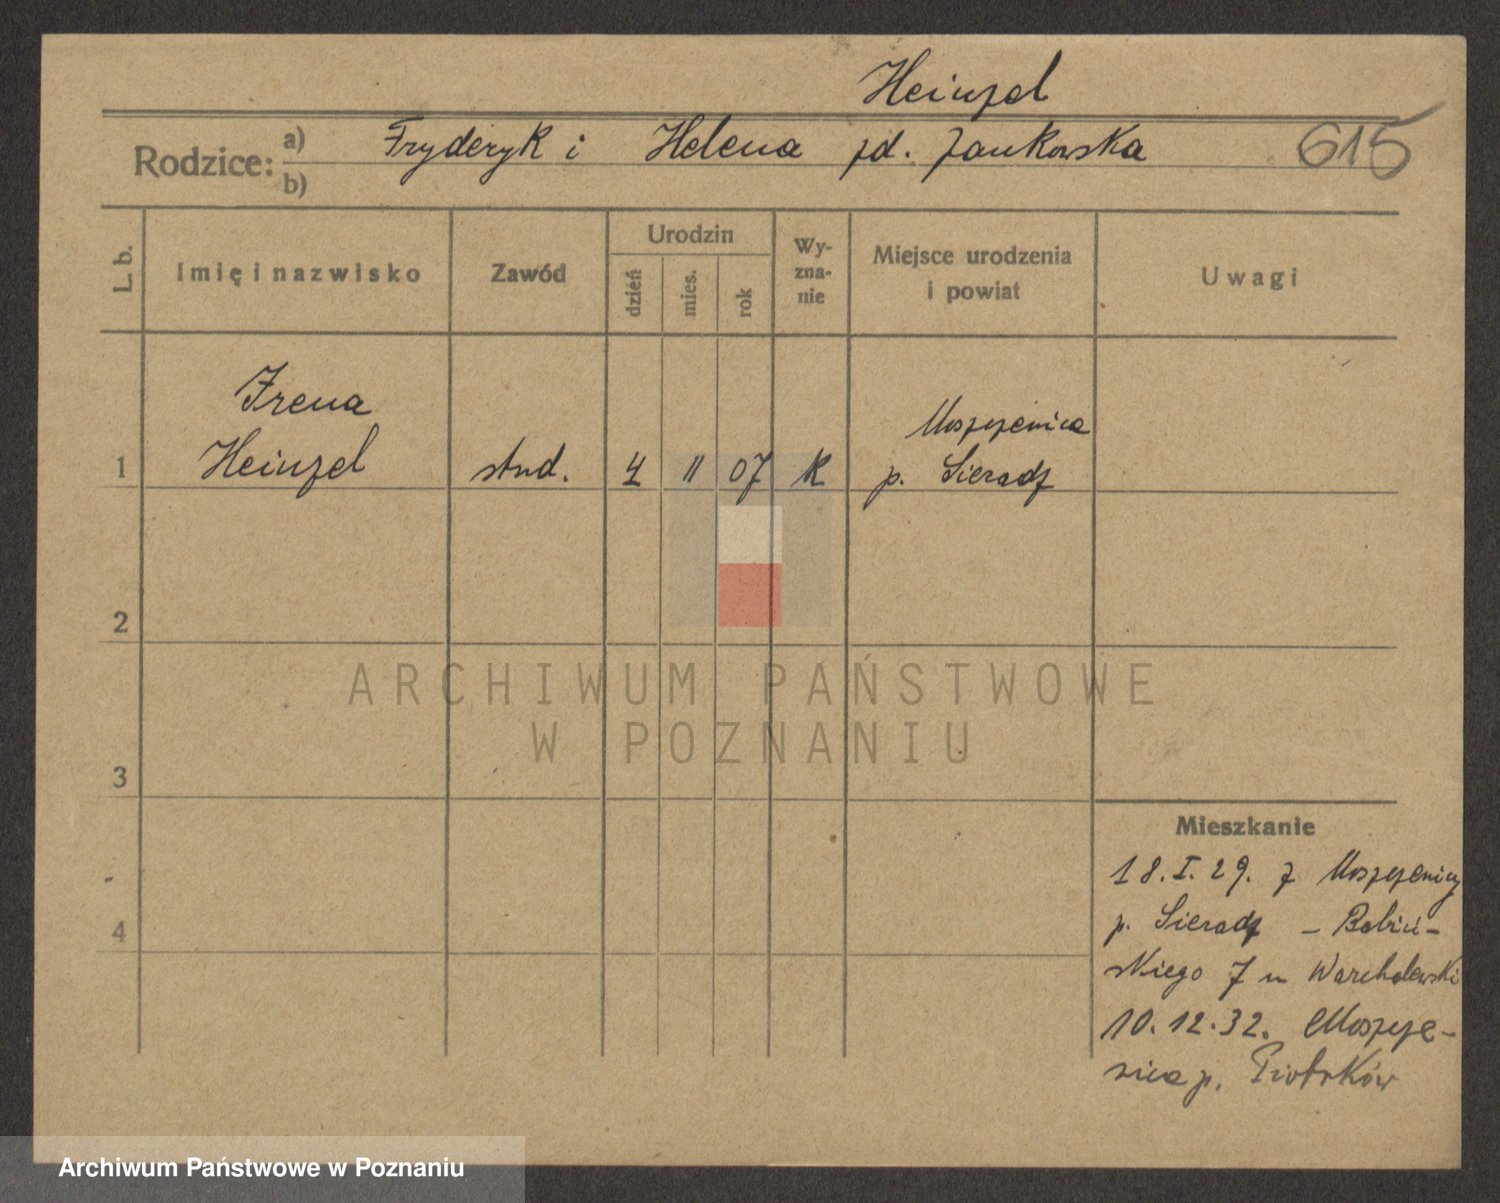 Heinzel
Rodzice: a) Fryderyk i Helena zd. Jankowska 615
b)
L. b. Imię i nazwisko Zawód Urodzin dzień mies. rok Wyznanie Miejsce urodzenia i powiat Uwagi
Irena
Moszczenica
1 Heinzel stud. 4 11 07 K p. Sieradz
2
ARCHIWUM PAŃSTWOWE
W POZNANIU
3
Mieszkanie
18.I.29. z Moszczenicy
4 p. Sieradz – Babiń-
skiego 7 u Warchalewski
10.12.32. Moszcze-
nica p. Piotrków
Archiwum Państwowe w Poznaniu